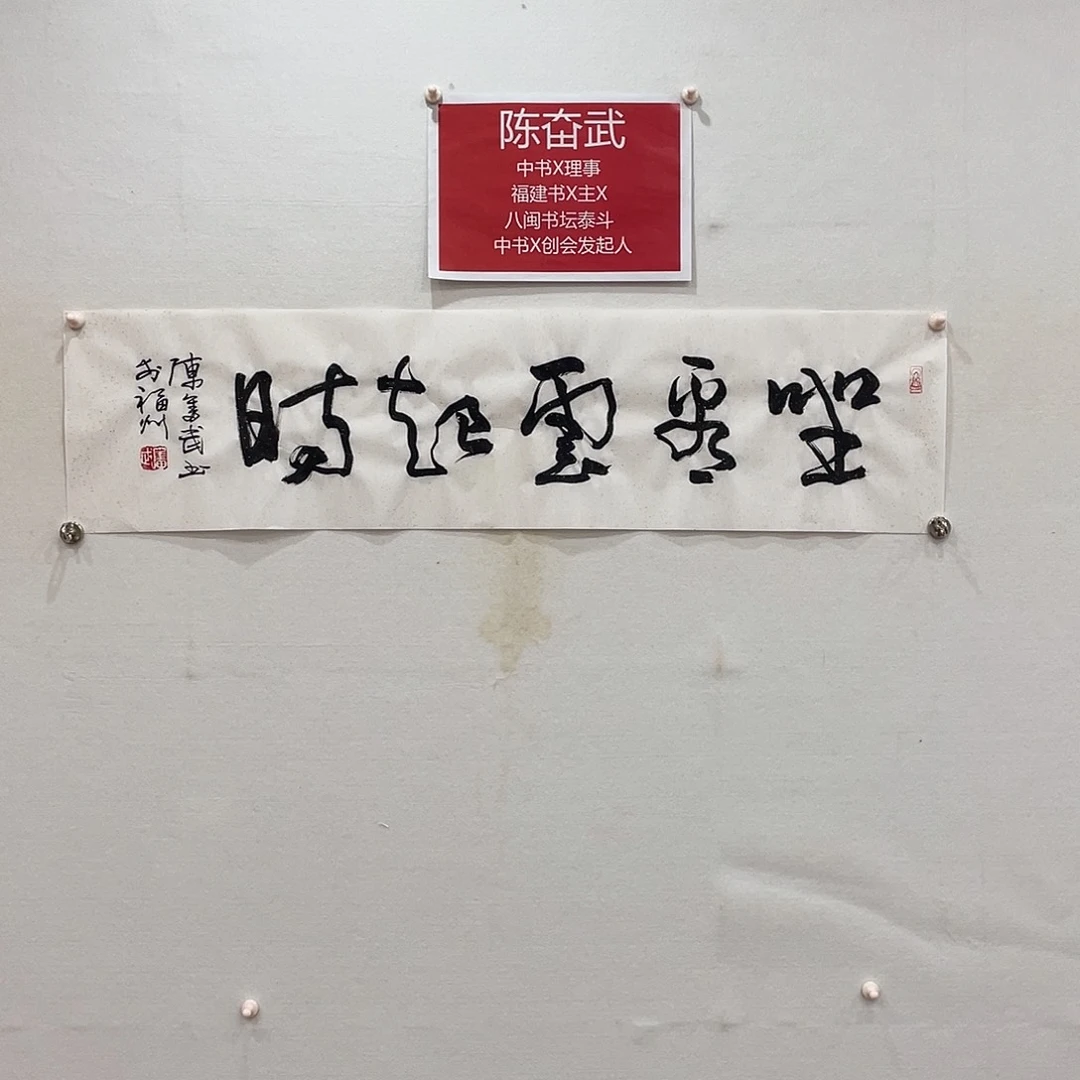 陈奋武
中书X理事
福建书X主X
八闽书坛泰斗
中书X创会发起人
坐看雲起時
陳奮武书
於福州